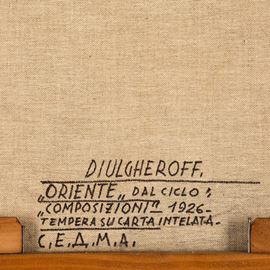 DIULGHEROFF.
„ORIENTE„ DAL CICLO:
„COMPOSIZIONI" 1926-
TEMPERA SU CARTA INTELATA-
С,Е,Д,М,А.